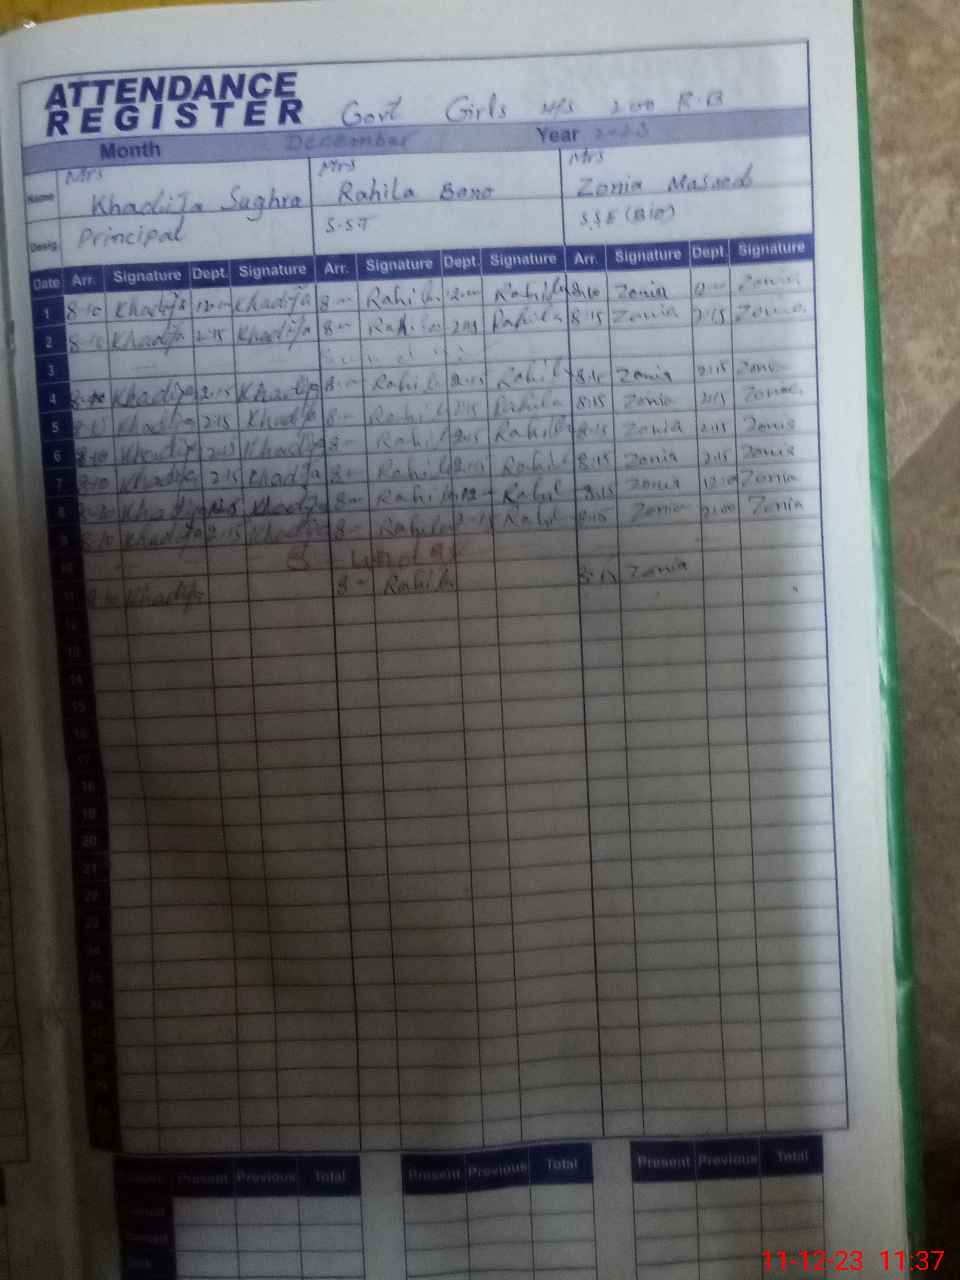 ATTENDANCE
REGISTER Govt Girls R.B
Month December Year 2023
Mrs Mrs Mrs
Name Khadija Sughra Rahila Bano Zonia Masood
Desig. Principal S.S.T S.S.E (Bio)
Date Arr. Signature Dept. Signature Arr. Signature Dept. Signature Arr. Signature Dept. Signature
1 8-10 Khadija 12-00 Khadija 8- Rahila 12-00 Rahila 8:10 Zonia 12-00 Zonia
2 8-10 Khadija 2:15 Khadija 8- Rahila 2:15 Rahila 8:15 Zonia 2:15 Zonia
3
4 8-10 Khadija 2:15 Khadija 8- Rahila 2:15 Rahila Zonia 2:15 Zonia
5 Khadija 2:15 Khadija 8- Rahila 2:15 Rahila 8:15 Zonia 2:15 Zonia
6 8-10 Khadija 2:15 Khadija 8- Rahila 2:15 Rahila 8:15 Zonia 2:15 Zonia
7 8-10 Khadija 2:15 Khadija 8- Rahila 2:15 Rahila 8:15 Zonia 2:15 Zonia
8 8-10 Khadija Khadija 8- Rahila 12- Rahila 8:15 Zonia 12:10 Zonia
9 8-10 Khadija 2:15 Khadija 8- Rahila 2-15 Rahila 8:15 Zonia Zonia
10
11 Khadija 8- Rahila 8:15 Zonia
12
13
14
15
16
17
18
19
20
21
22
23
24
25
26
27
28
29
30
Present Previous Total Present Previous Total Present Previous Total
11-12-23 11:37